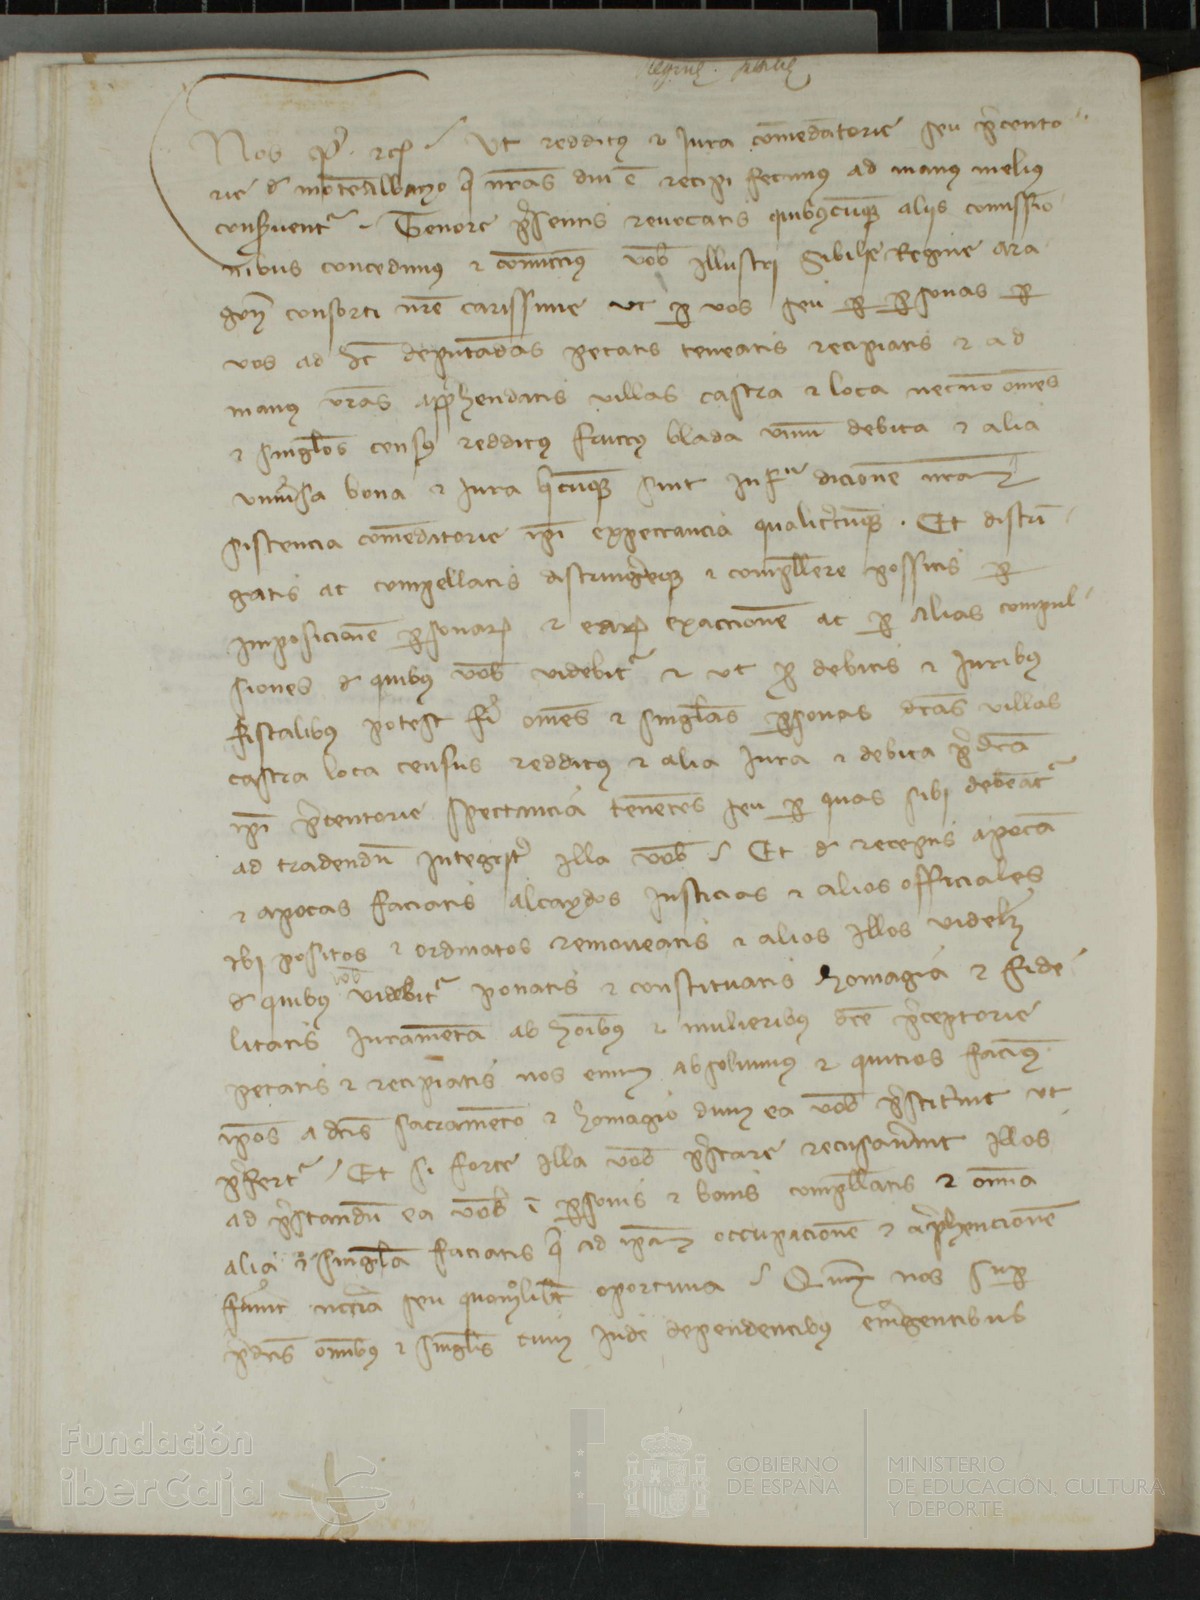 Nos P. etc. Ut redditus et Iura comedatorie seu p̄cento
rie d montealbano q̄ nr̄as diu ē recipi fecimus ad manus melius
conserventr. Tenore p̄sentis revocatis quibuscumq aliis comissio
nibus concedimus et comittimus vob Illustri Sibilie Regine Ara
gon consorti nr̄e carissime ut p vos seu p psonas p
vos ad hc deputadas petatis teneatis recipiatis et ad
manus vr̄as apphendatis villas castra et loca necno om̄es
et singlos census redditus fructus blada vinum debita et alia
univ̄sa bona et Iura q̄cumq sint dicione
sistencia comēdatorie ip̄i expectancia qualit̄cumq. Et distri
gatis ac compellatis distrinḡeq et compllere possitis p
imposicionē psonar et ear exaccionē ac p alias compul
siones d quibus vob videbitr et ut p debitis et Iuribus
fiscalibus potest fi om̄es et singlas psonas dc̄as villas
castra loca census redditus et alia Iura et debita p̄dc̄a
ip̄i p̄centorie spectancia tenētes seu p quas sibi debeātr
ad tradendū integrit̄ illa vob. Et d receptis apocā
et apocas faciatis alcaydos Iusticias et alios officiales
ibi positos et ordinatos removeatis et alios illos videlz
d quibus vob videbitr ponatis et constituatis homagia et fide
litatis Iuramenta ab hoībus et mulieribus dc̄e p̄ceptorie
petatis et recipiatis nos enim absolvimus et quitios facimus
ip̄os a dc̄is sacramento et homagio dum ea vob p̄stit̄int ut
p̄fertr. Et si forte illa vob p̄stare recusav̄int illos
ad p̄standū ea vob ī psonis et bonis compllatis et om̄ia
alia et singla faciatis q̄ ad ip̄am occupacionē et app̄hencionē
fu̅int nc̄c̄ria seu quomolibt oportuna. Quum nos sup
p̄dc̄is om̄ibus et singlis cum inde dependentibus em̄gentibus
Fundación
iberCaja
GOBIERNO
DE ESPAÑA
MINISTERIO
DE EDUCACIÓN, CULTURA
Y DEPORTE